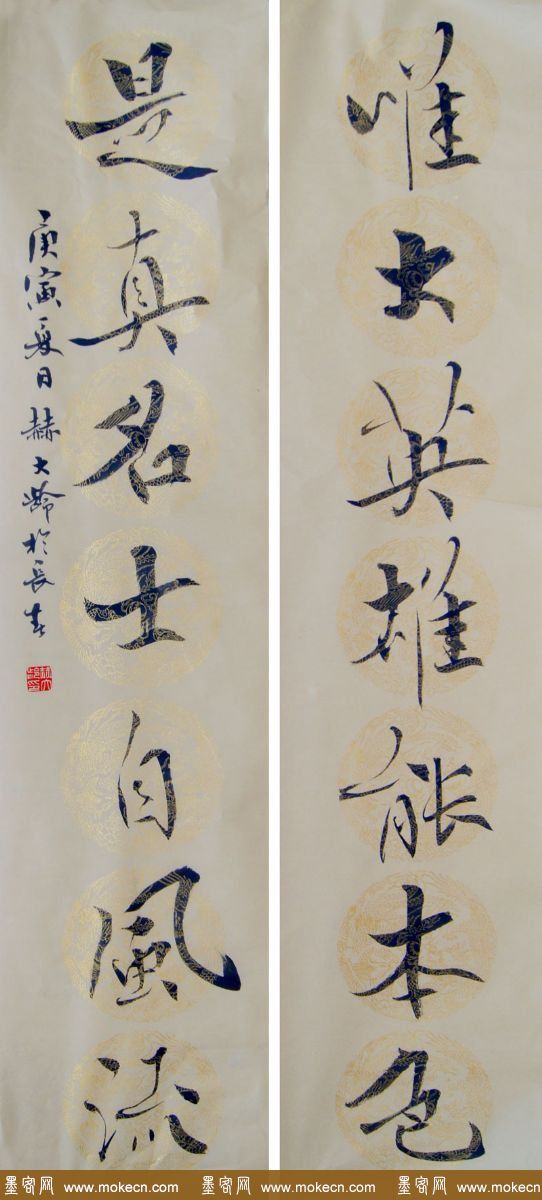 唯大英雄能本色
是真名士自風流
庚寅夏日赫大龄於長春
墨客网 www.mokecn.com 墨客网 www.mokecn.com 墨客网 www.mokecn.com 墨客网